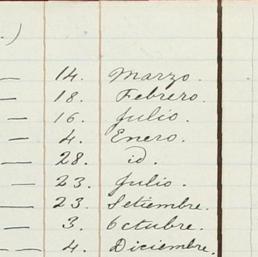 )
— 14. Marzo.
— 18. Febrero.
— 16. Julio.
— 4. Enero.
— 28. id.
— 23. Julio.
— 23. Setiembre.
— 3. Octubre.
— 4. Diciembre.